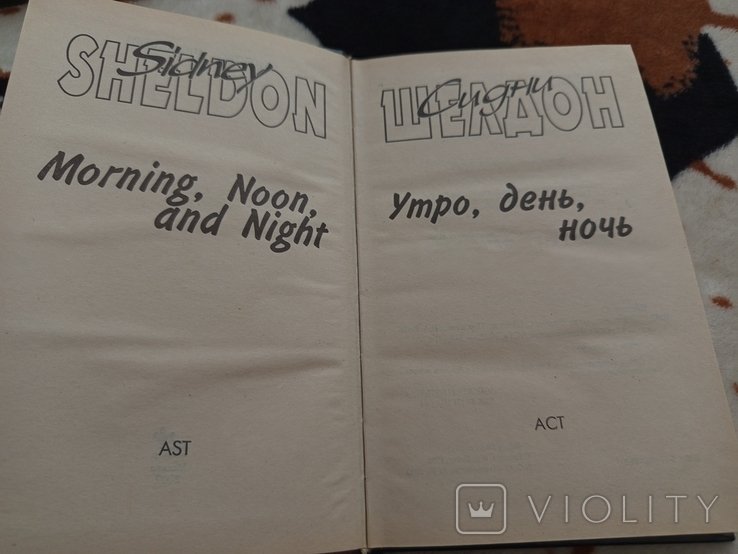 Sidney
SHELDON
Morning, Noon,
and Night
AST
Сидни
ШЕЛДОН
Утро, день,
ночь
АСТ
VIOLITY